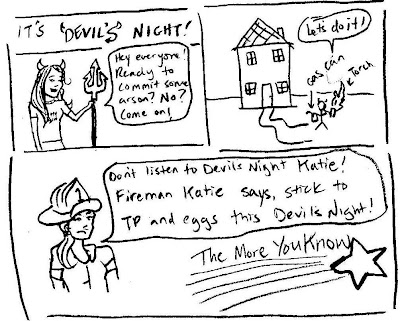 IT'S "DEVIL'S" NIGHT!
Hey everyone!
Ready to
commit some
arson? No?
Come on!
Lets do it!
gas can
torch
Don't listen to Devils Night Katie!
Fireman Katie says, stick to
TP and eggs this Devil's Night!
The More You Know